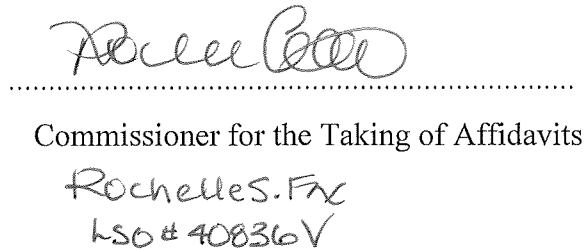 Commissioner for the Taking of Affidavits
Rochelle S. Fox
LSO # 40836V